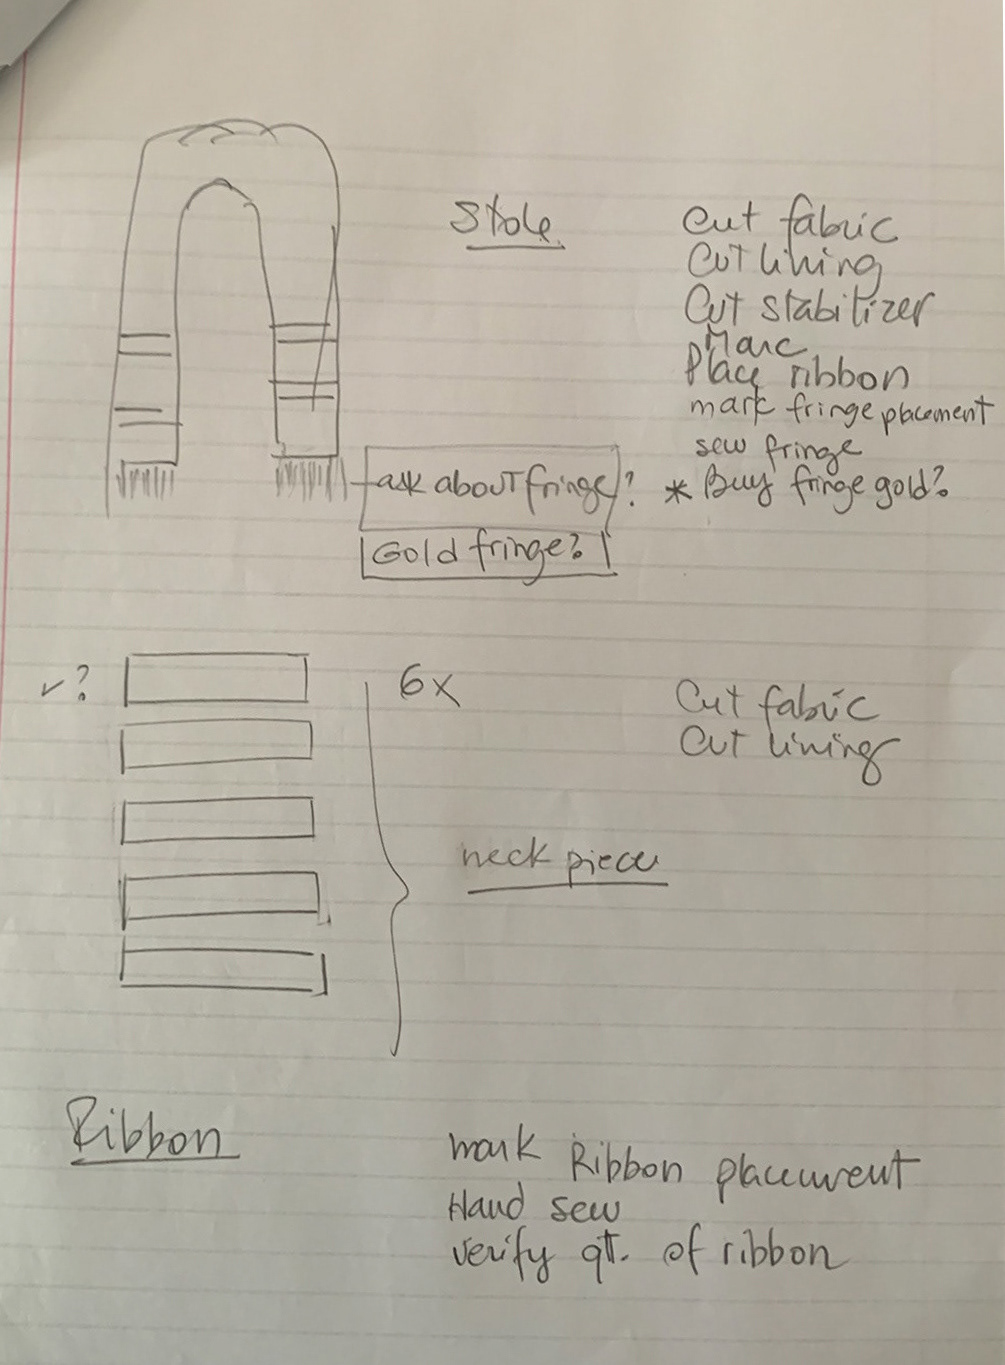 Stole
Cut fabric
Cut lining
Cut stabilizer
Marc
Place ribbon
mark fringe placement
sew fringe
* Buy fringe gold?
ask about fringe?
Gold fringe?
✓?
6x
Cut fabric
Cut lining
neck piece
Ribbon
mark Ribbon placement
Hand sew
verify qt. of ribbon